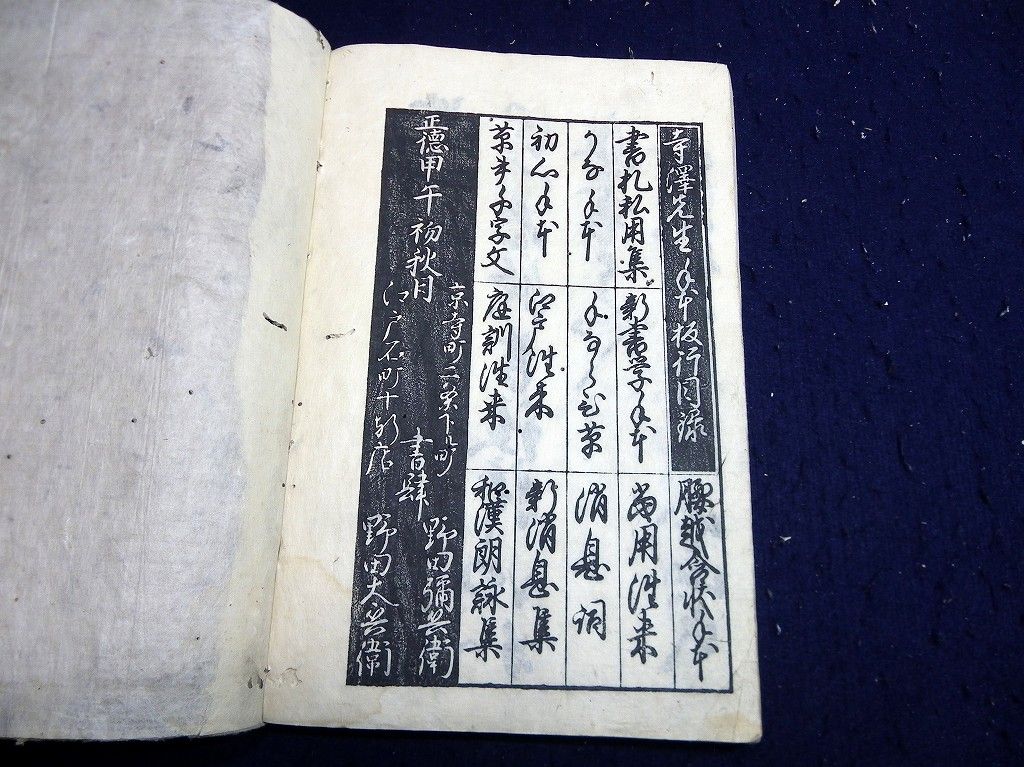 寺澤先生手本板行目録
腰越含状手本
書札私用集
新書学手本
当用往来
かな手本
手ならひ草
消息詞
初心手本
江戸往来
新消息集
草字千字文
庭訓往来
和漢朗詠集
正徳甲午初秋月
京寺町二条下ル町
野田彌兵衛
書肆
江戸石町十軒店
野田太兵衛